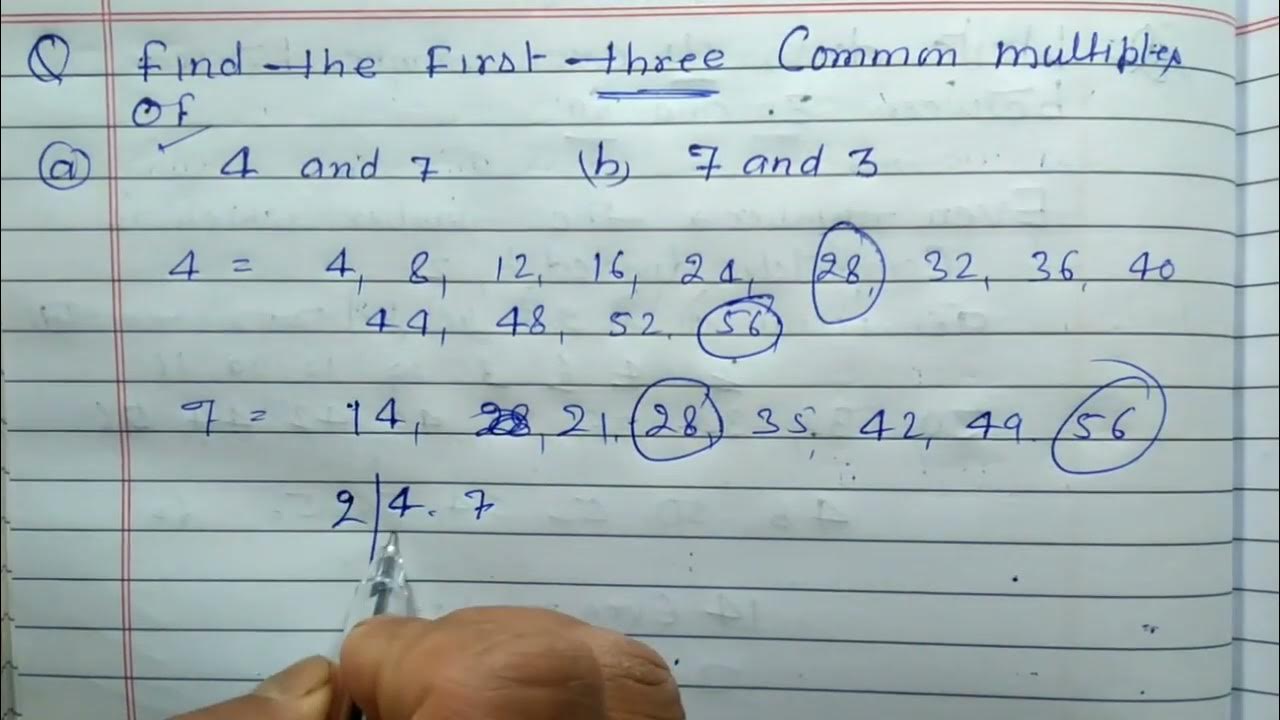 Q Find the First three Common multiples
of
(a) 4 and 7 (b) 7 and 3
4 = 4, 8, 12, 16, 24, 28, 32, 36, 40
44, 48, 52, 56
7 = 14, 21, 28, 35, 42, 49, 56
2 | 4, 7